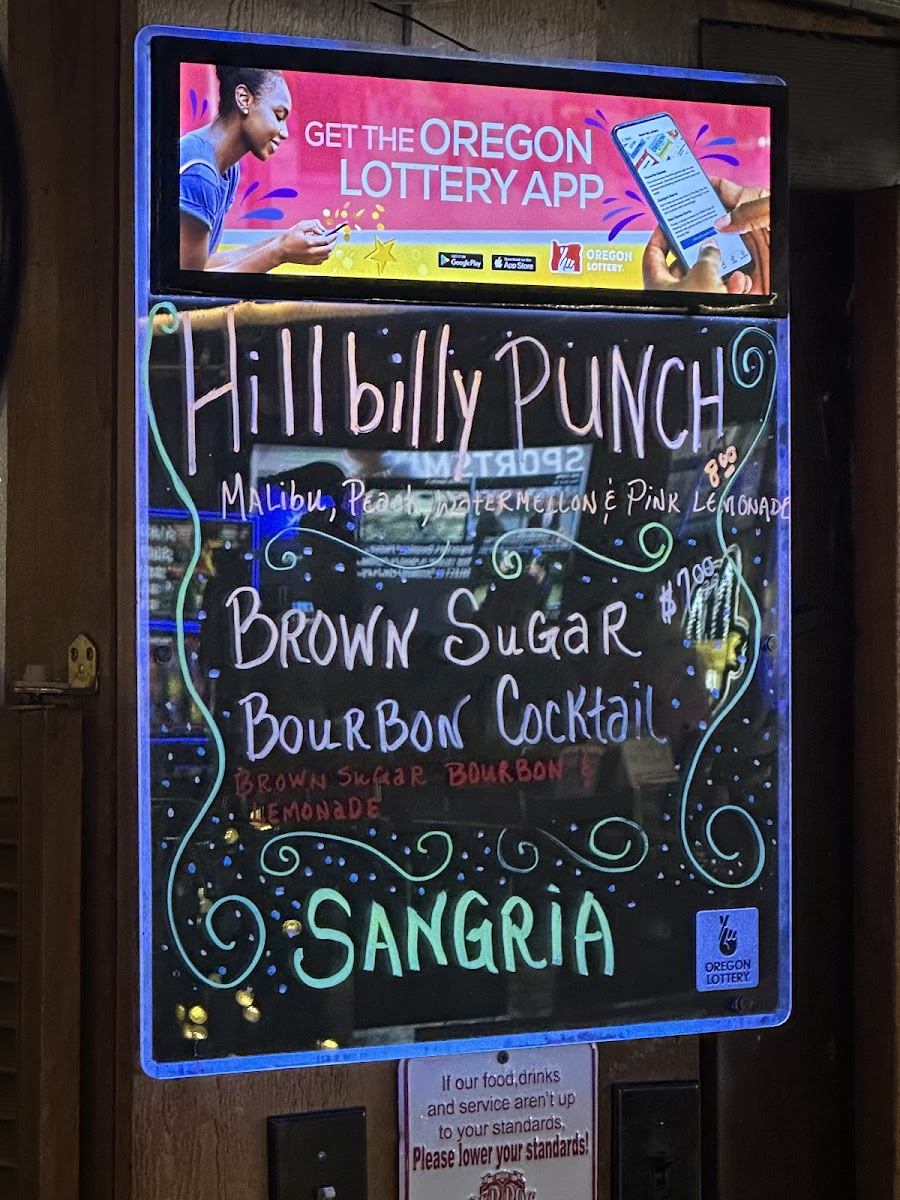 GET THE OREGON
LOTTERY APP
GET IT ON
Google Play
Download on the
App Store
OREGON
LOTTERY
Hillbilly PUNCH
8.00
Malibu, Peach, WATERMELLON & PINK LEMONADE
BROWN SUGAR
$7.00
BOURBON Cocktail
BROWN SUGAR BOURBON &
LEMONADE
SANGRIA
OREGON
LOTTERY
If our food,drinks
and service aren't up
to your standards,
Please lower your standards!